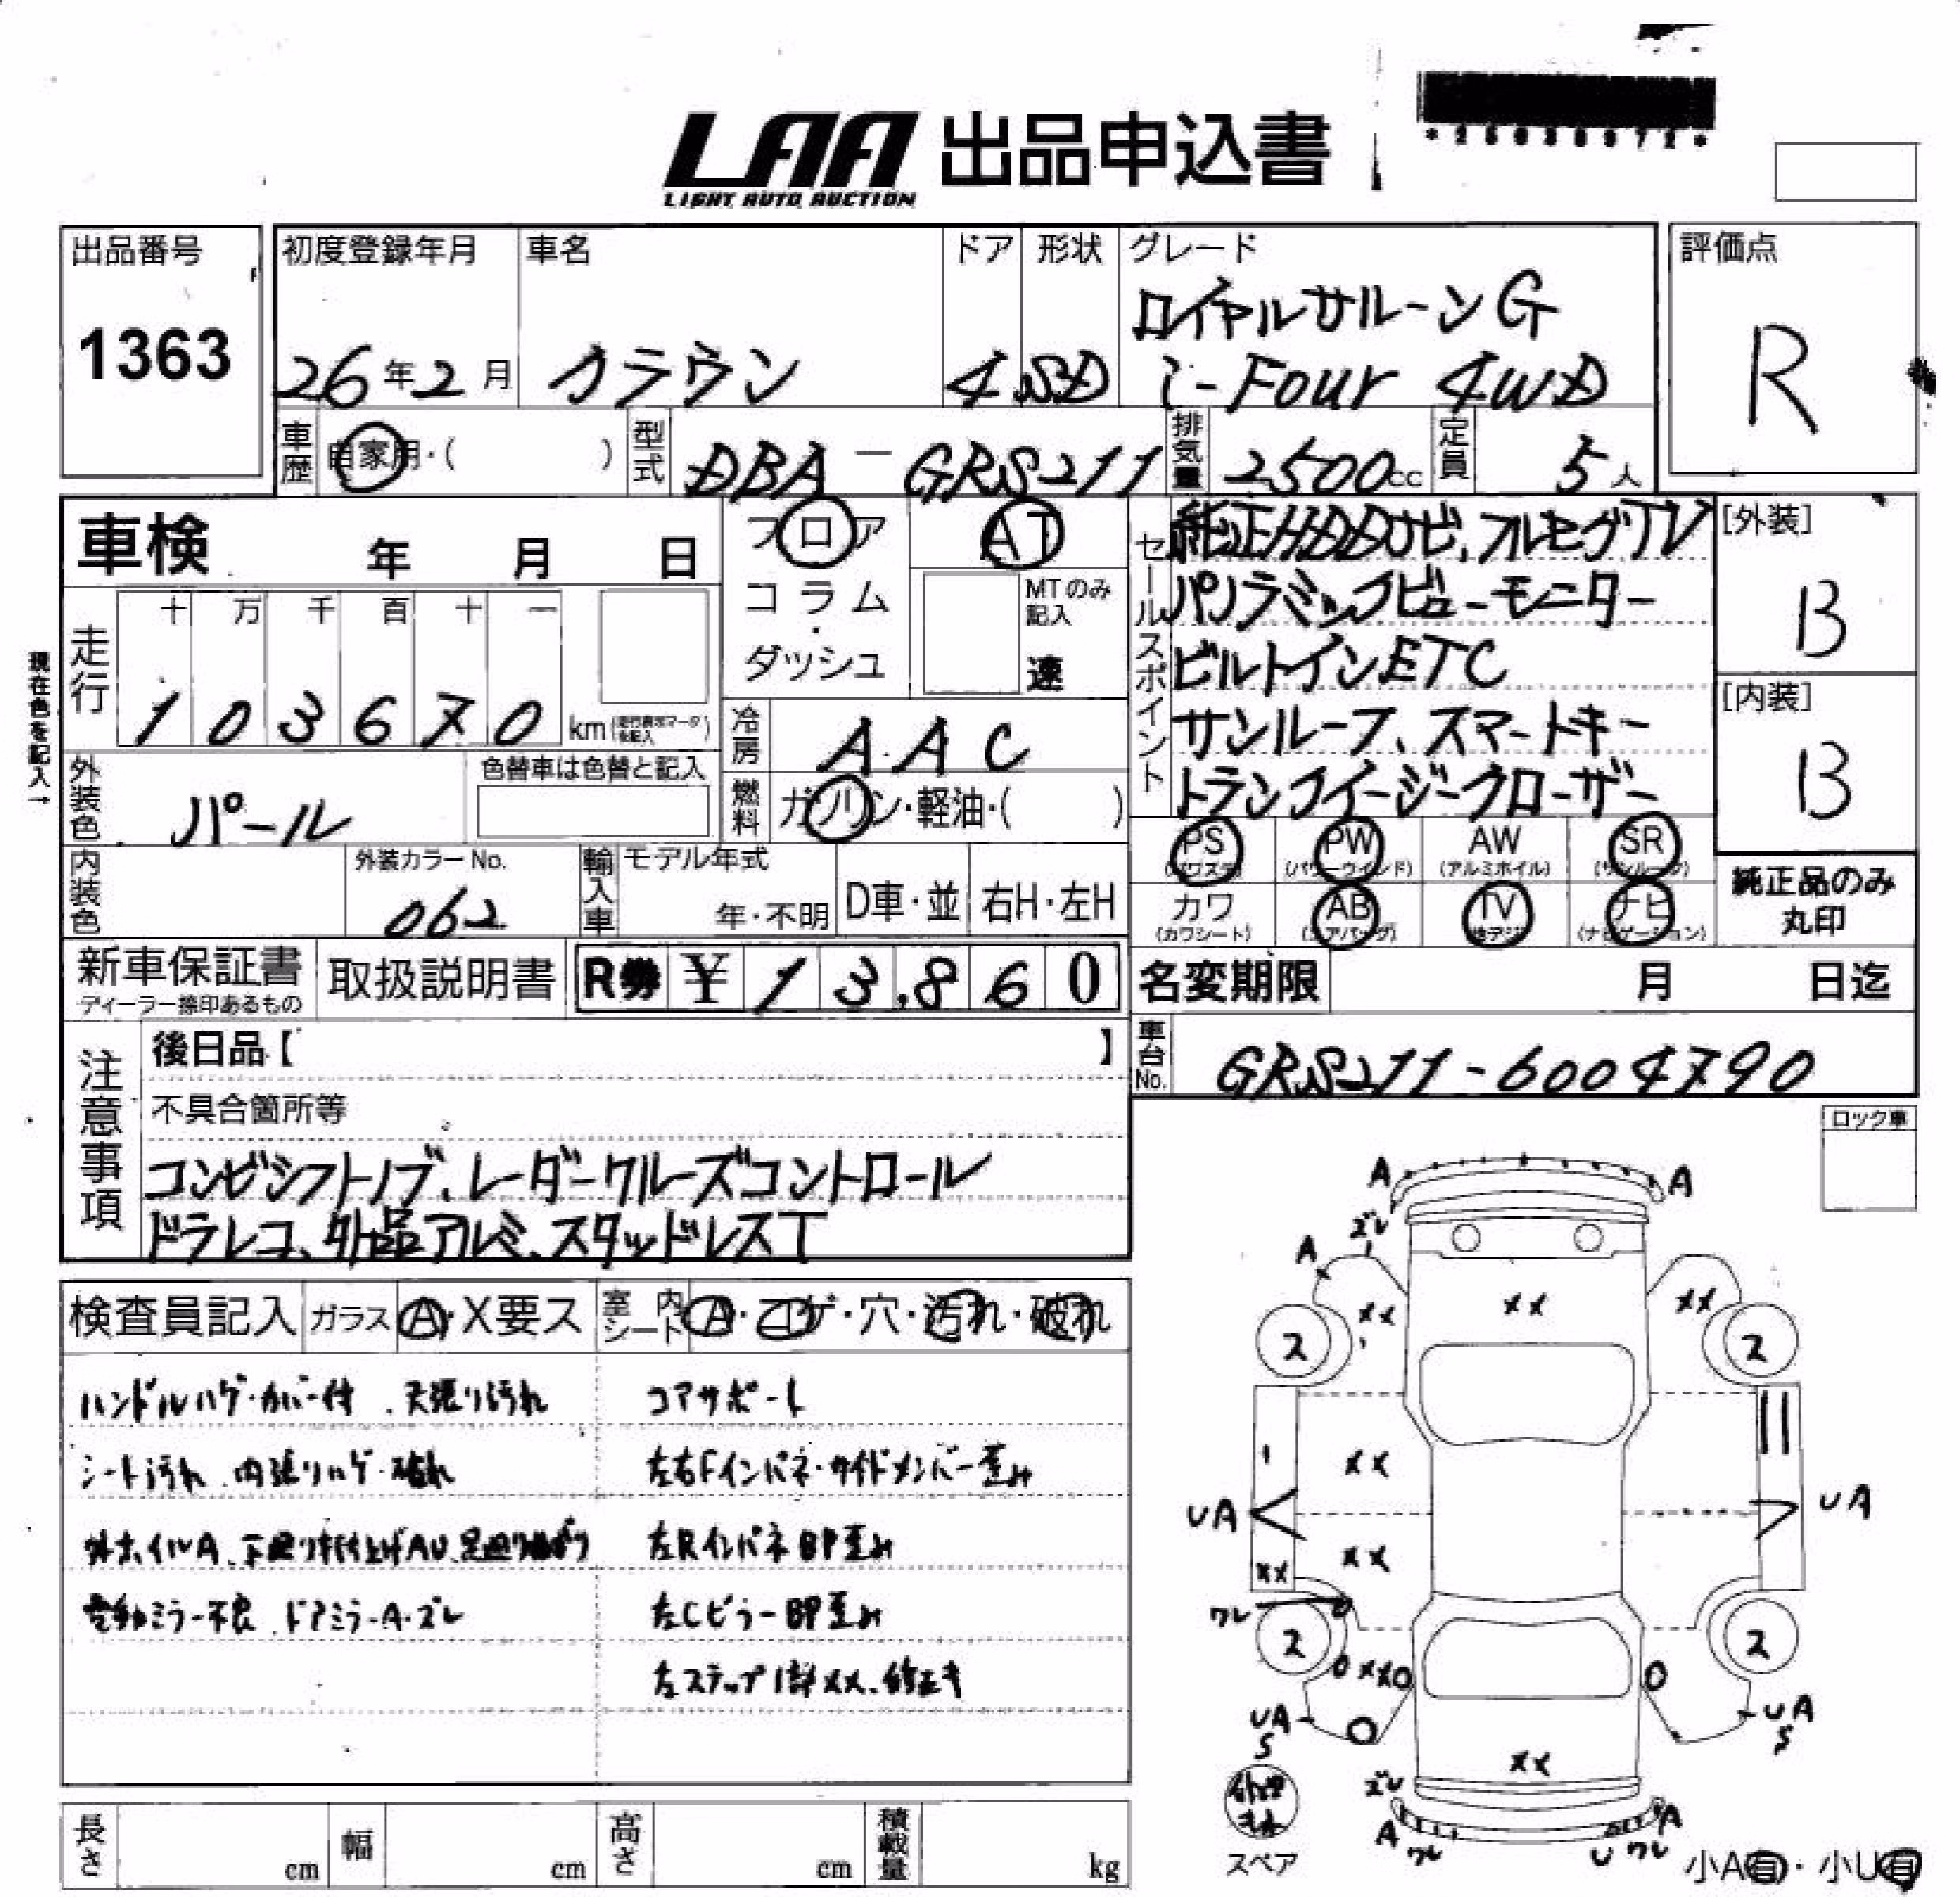 LAA 出品申込書
LIGHT AUTO AUCTION
出品番号
1363
初度登録年月
26年2月
車名
クラウン
ドア
4
形状
SD
グレード
ロイヤルサルーンG
i-Four 4WD
評価点
R
車歴 自家用・( )
型式 DBA-GRS211
排気量 2500cc
定員 5人
車検 年 月 日
フロア
コラム
・
ダッシュ
AT
MTのみ記入
速
セールスポイント
純正HDDナビ、フルセグTV
パノラミックビューモニター
ビルトインETC
サンルーフ、スマートキー
トランクイージークローザー
[外装]
B
[内装]
B
現在色を記入→
走行
十 万 千 百 十 一
1 0 3 6 7 0 km
冷房 AAC
燃料 ガソリン・軽油・( )
外装色 パール
色替車は色替と記入
内装色
外装カラーNo.
062
輸入車
モデル年式
年・不明
D車・並
右H・左H
PS (パワステ)
PW (パワーウィンド)
AW (アルミホイル)
SR (サンルーフ)
カワ (カワシート)
AB (エアバッグ)
TV (地デジ)
ナビ (ナビゲーション)
純正品のみ
丸印
新車保証書
ディーラー捺印あるもの
取扱説明書
R券 ¥ 13,860
名変期限 月 日迄
車台No. GRS211-6004790
注意事項
後日品【 】
不具合箇所等
コンビシフトノブ、レーダークルーズコントロール
ドラレコ、外品アルミ、スタッドレスT
ロック車
検査員記入
ガラス A・X要ス
室内シート A・コゲ・穴・汚れ・破れ
ハンドルハゲ・カバー付、天張り汚れ
シート汚れ、内張りハゲ・破れ
外ホイルA、下廻り
電動ミラー不良、ドアミラーA・ズレ
コアサポート
左右Fインパネ・サイドメンバー歪み
左Rインパネ BP歪み
左Cピラー BP歪み
左ステップ1部XX、修正キ
A A
ズレ
A
XX XX XX
2 2
XX
UA UA
XX XX
ワレ
2 2
XX
UA S
UA S
XX
ズレ
A ワレ
U ワレ A
スペア
小A有・小U有
長さ cm
幅 cm
高さ cm
積載量 kg